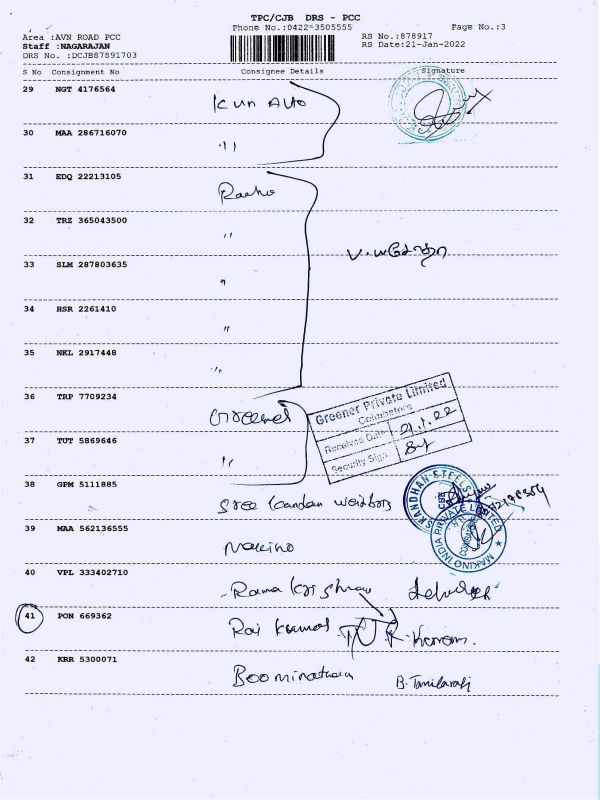 TPC/CJB DRS - PCC
Phone No.:0422-3505555 Page No.:3
Area :AVN ROAD PCC
RS No.:878917
Staff :NAGARAJAN
RS Date:21-Jan-2022
DRS No. :DCJB87891703
S No Consignment No Consignee Details Signature
29 NGT 4176564 Kun Auto
30 MAA 286716070 "
31 EDQ 22213105
32 TRZ 365043500 "
33 SLM 287803635 "
34 HSR 2261410 "
35 NKL 2917448 "
36 TRP 7709234 Greener
Greener Private Limited
Coimbatore
Received Date 21.1.22
Security Sign
37 TUT 5869646 "
38 GPM 5111885 Sree Kandan
SKANDHAN STEELS
CBE
39 MAA 562136555 Makino
MAKINO INDIA PRIVATE LIMITED
40 VPL 333402710 Rama Krishnan
41 PON 669362 Raj Kumar
42 KRR 5300071 Boominathan B. Tamilarasi